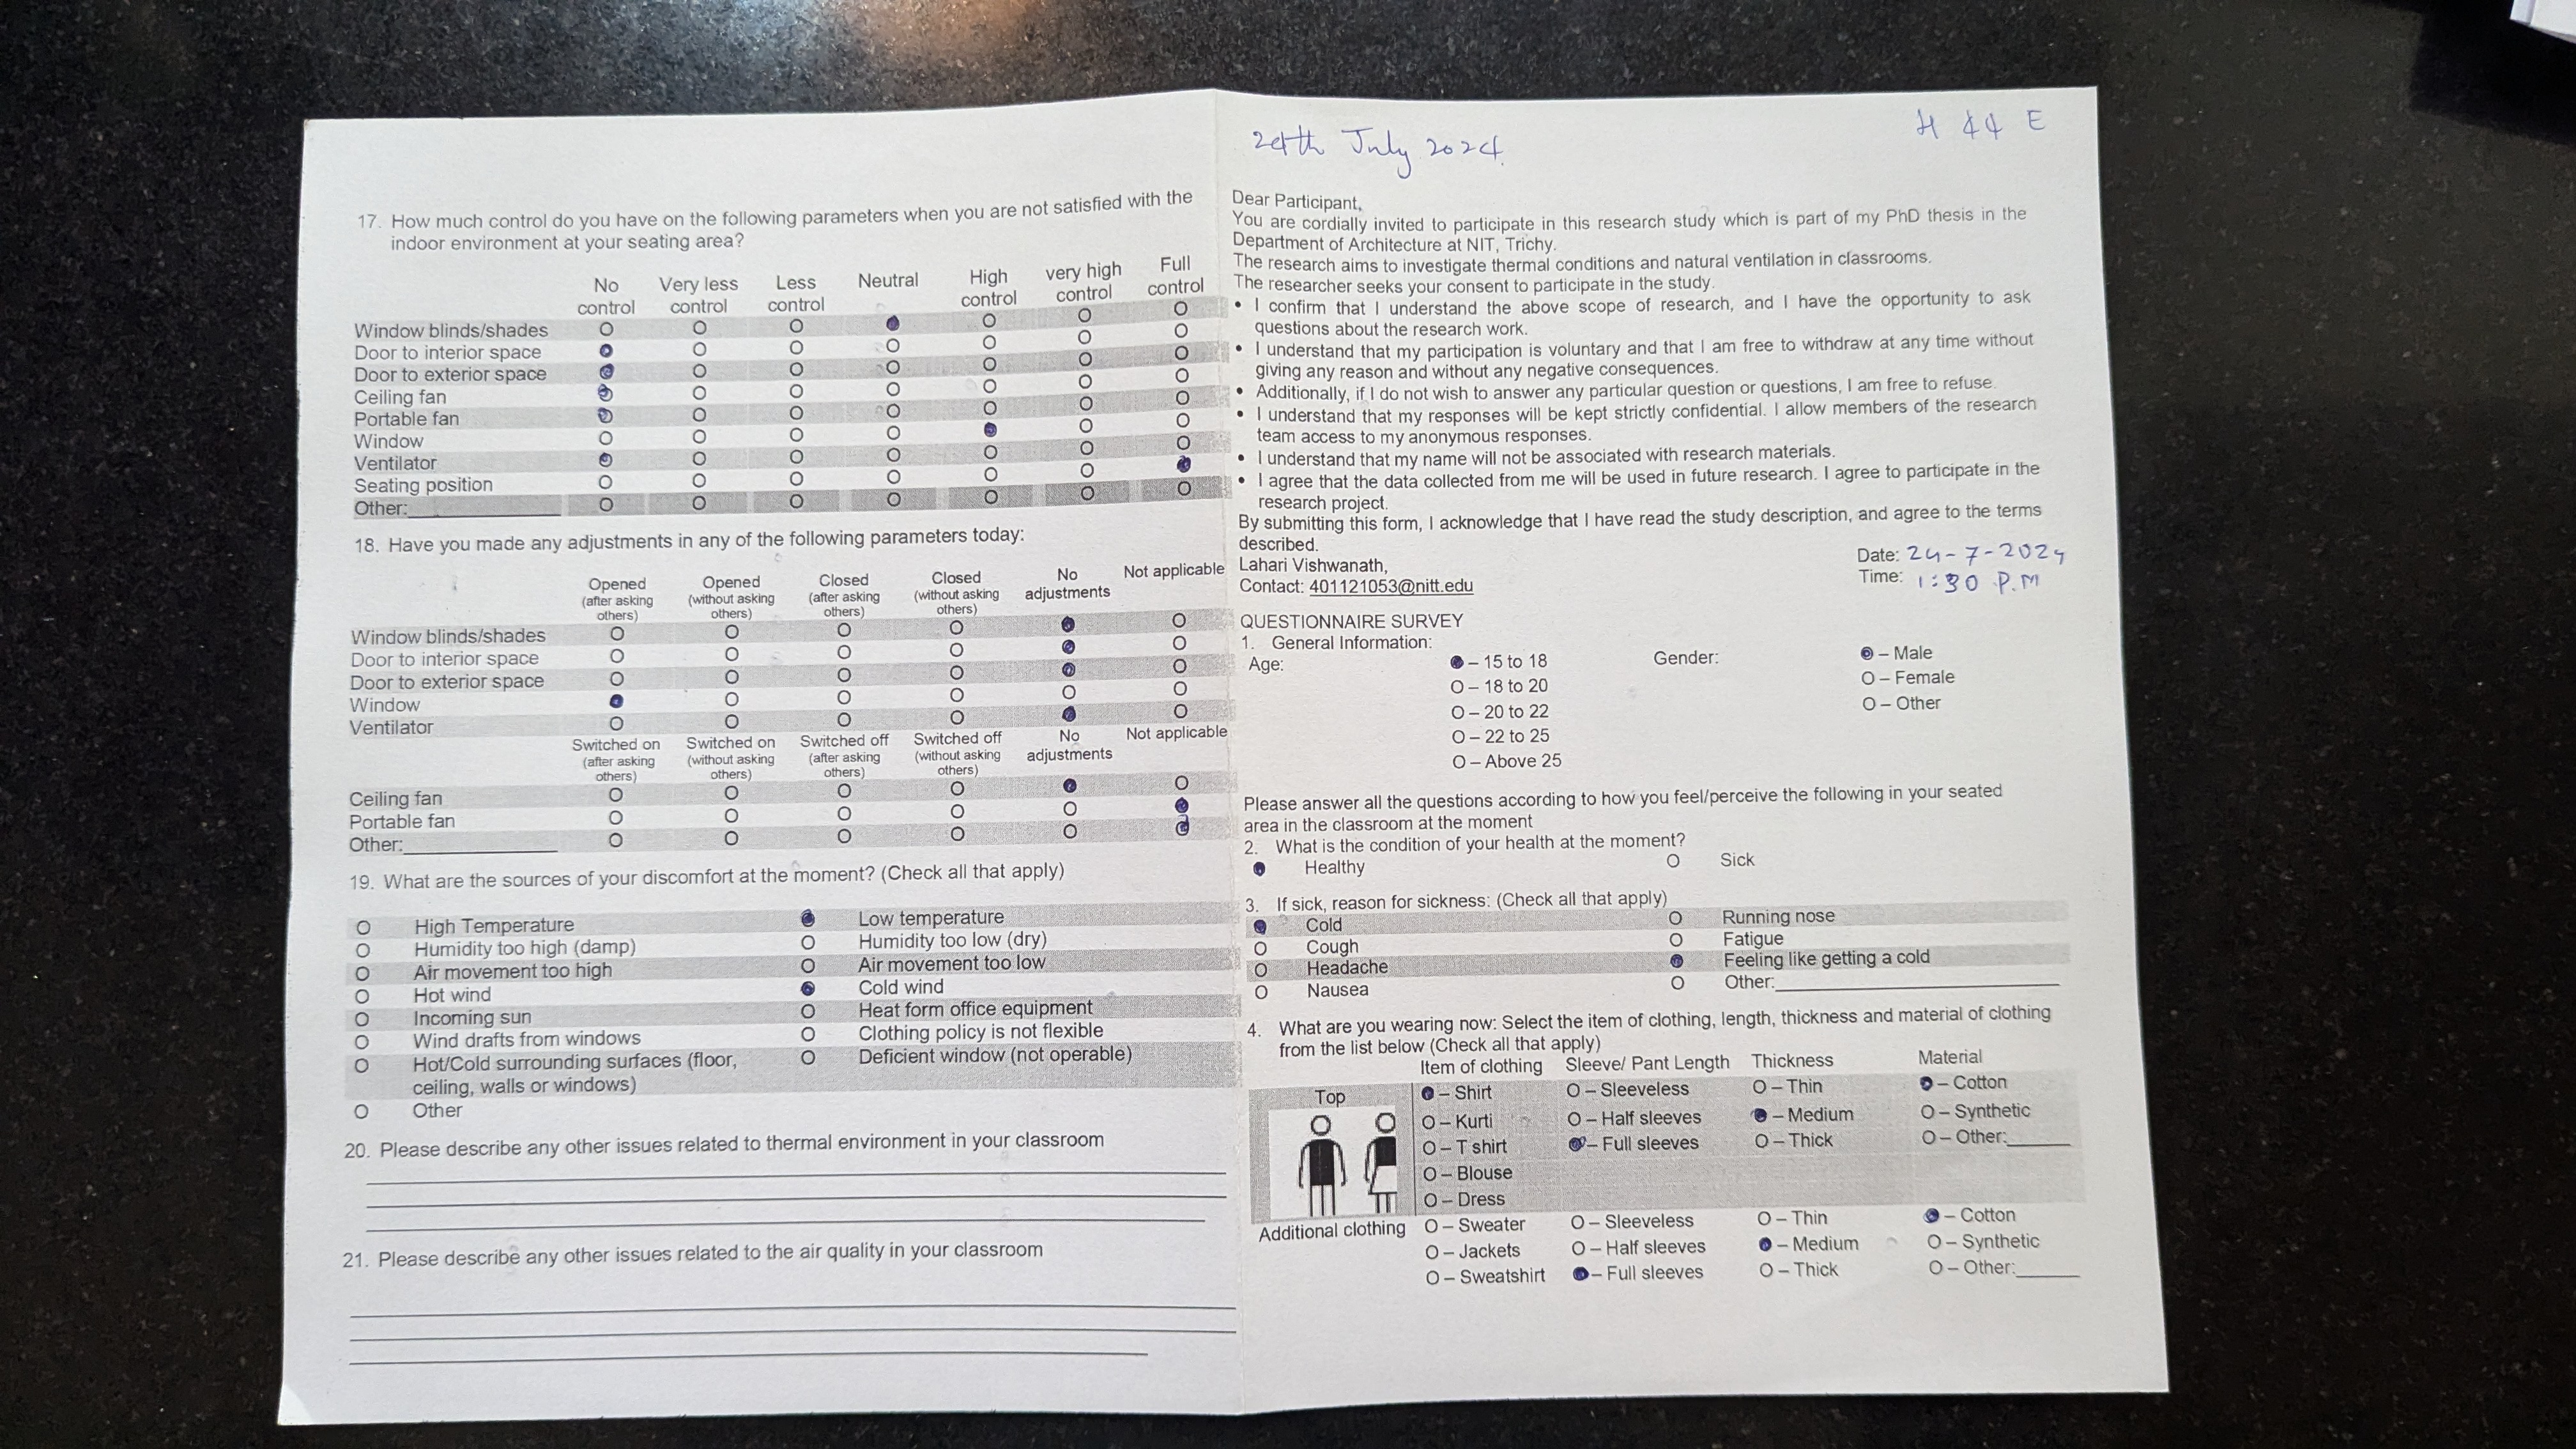 17. How much control do you have on the following parameters when you are not satisfied with the
indoor environment at your seating area?
No control Very less control Less control Neutral High control very high control Full control
Window blinds/shades O O O ● O O O
Door to interior space ● O O O O O O
Door to exterior space ● O O O O O O
Ceiling fan ● O O O O O O
Portable fan ● O O O O O O
Window O O O O ● O O
Ventilator ● O O O O O O
Seating position O O O O O O ●
Other:____________ O O O O O O O
18. Have you made any adjustments in any of the following parameters today:
Opened (after asking others) Opened (without asking others) Closed (after asking others) Closed (without asking others) No adjustments Not applicable
Window blinds/shades O O O O ● O
Door to interior space O O O O ● O
Door to exterior space O O O O ● O
Window ● O O O O O
Ventilator O O O O ● O
Switched on (after asking others) Switched on (without asking others) Switched off (after asking others) Switched off (without asking others) No adjustments Not applicable
Ceiling fan O O O O ● O
Portable fan O O O O O ●
Other:____________ O O O O O ●
19. What are the sources of your discomfort at the moment? (Check all that apply)
O High Temperature ● Low temperature
O Humidity too high (damp) O Humidity too low (dry)
O Air movement too high O Air movement too low
O Hot wind ● Cold wind
O Incoming sun O Heat form office equipment
O Wind drafts from windows O Clothing policy is not flexible
O Hot/Cold surrounding surfaces (floor, O Deficient window (not operable)
ceiling, walls or windows)
O Other
20. Please describe any other issues related to thermal environment in your classroom
21. Please describe any other issues related to the air quality in your classroom
24th July 2024
H 44 E
Dear Participant,
You are cordially invited to participate in this research study which is part of my PhD thesis in the
Department of Architecture at NIT, Trichy.
The research aims to investigate thermal conditions and natural ventilation in classrooms.
The researcher seeks your consent to participate in the study.
• I confirm that I understand the above scope of research, and I have the opportunity to ask
questions about the research work.
• I understand that my participation is voluntary and that I am free to withdraw at any time without
giving any reason and without any negative consequences.
• Additionally, if I do not wish to answer any particular question or questions, I am free to refuse.
• I understand that my responses will be kept strictly confidential. I allow members of the research
team access to my anonymous responses.
• I understand that my name will not be associated with research materials.
• I agree that the data collected from me will be used in future research. I agree to participate in the
research project.
By submitting this form, I acknowledge that I have read the study description, and agree to the terms
described.
Lahari Vishwanath,
Contact: 401121053@nitt.edu
Date: 24-7-2024
Time: 1:30 P.M
QUESTIONNAIRE SURVEY
1. General Information:
Age: ● – 15 to 18 Gender: ● – Male
O – 18 to 20 O – Female
O – 20 to 22 O – Other
O – 22 to 25
O – Above 25
Please answer all the questions according to how you feel/perceive the following in your seated
area in the classroom at the moment
2. What is the condition of your health at the moment?
● Healthy O Sick
3. If sick, reason for sickness: (Check all that apply)
● Cold O Running nose
O Cough O Fatigue
O Headache ● Feeling like getting a cold
O Nausea O Other:____________
4. What are you wearing now: Select the item of clothing, length, thickness and material of clothing
from the list below (Check all that apply)
Item of clothing Sleeve/ Pant Length Thickness Material
Top ● – Shirt O – Sleeveless O – Thin ● – Cotton
O – Kurti O – Half sleeves ● – Medium O – Synthetic
O – T shirt ● – Full sleeves O – Thick O – Other:______
O – Blouse
O – Dress
Additional clothing O – Sweater O – Sleeveless O – Thin ● – Cotton
O – Jackets O – Half sleeves ● – Medium O – Synthetic
O – Sweatshirt ● – Full sleeves O – Thick O – Other:______